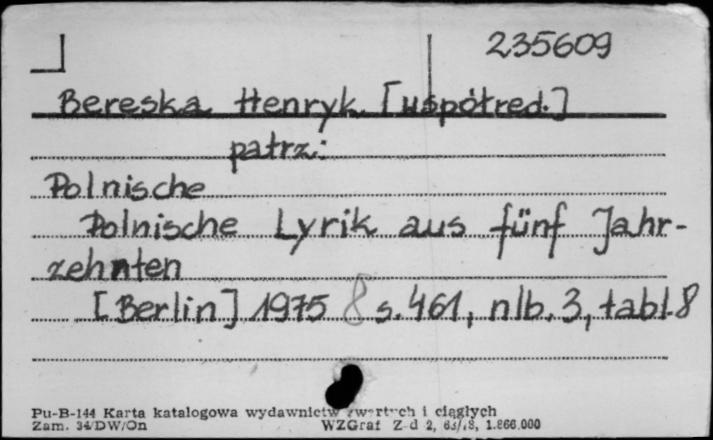 235609
Bereska Henryk [współred.]
patrz:
Polnische
Polnische Lyrik aus fünf Jahr-
zehnten
[Berlin] 1975 8 s. 461, nlb. 3, tabl. 8
Pu-B-144 Karta katalogowa wydawnictw zwartych i ciągłych
Zam. 34/DW/On WZGraf Z-d 2, 1.866.000